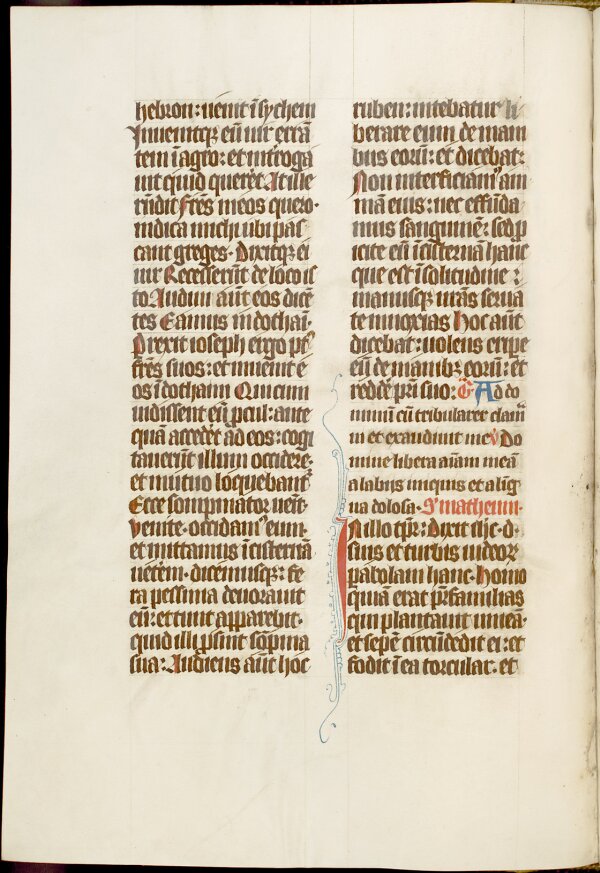 hebron: uenit ĩ sychem
Inuenitq; eũ uir errã
tem ĩ agro: et ĩntroga
uit quid quereret At ille
rñdit Fr̃es meos quero·
indica michi ubi pas
cant greges· Dixitq; ei
uir Recesserũt de loco is
to Audiui aũt eos dicẽ
tes Eamus in dothaĩ·
Prexit ioseph ergo pt̃
fr̃es suos: et inuenit e
os ĩ dothaim Qui cum
uidissent eũ ꝓcul: ante
quã accederet ad eos: cogi
tauerũt illum occidere:
et mutuo loquebant᷑
Ecce sompniator uenit·
Venite· occidam᷒ eum·
et mittamus ĩ cisternã
uetem· dicemusq;: fe
ra pessima deuorauit
eũ: et tunc apparebit·
quid illi ꝓsint sõpnia
sua: Audiens aũt hoc
ruben: nitebatur li
berare eum de mani
bus eorũ: et dicebat:
Non interficiam᷒ ani
mã eius: nec effũda
mus sanguinẽ: sed ꝓ
icite eũ ĩ cisternã hanc
que est ĩ solitudine:
manusq; urãs serua
te innoxias Hoc aũt
dicebat: uolens eripe
eũ de manibꝫ eorũ: et
redde pr̃i suo: G̃ Ad do
minũ cũ tribularer clam̃
ui et exaudiuit me V̉ Do
mine libera aĩam meã
a labijs iniquis et a lĩg
ua dolosa· S' matheum·
In illo tp̃r: dixit ihc· d·
suis et turbis iudeoꝝ
parabolam hanc· Homo
quidã erat pr̃ familias
qui plantauit uineã·
et sepẽ circũdedit ei: et
fodit ĩ ea torcular· et